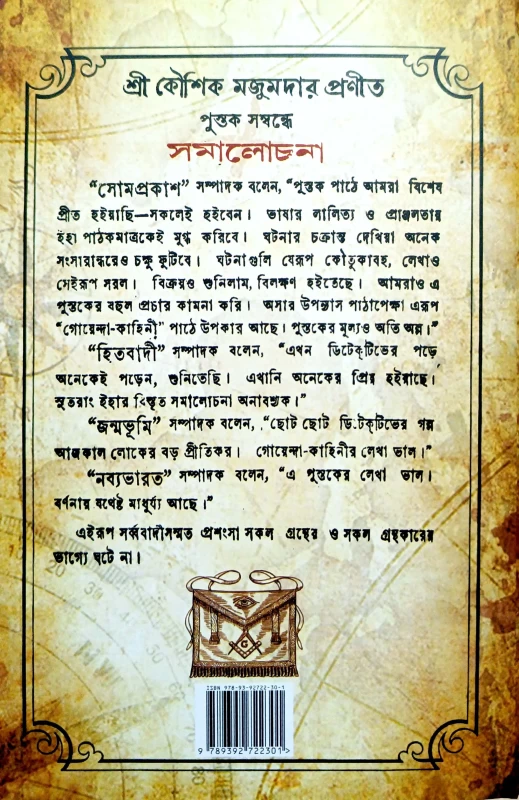 শ্রী কৌশিক মজুমদার প্রণীত
পুস্তক সম্বন্ধে
সমালোচনা
“সোমপ্রকাশ” সম্পাদক বলেন, “পুস্তক পাঠে আমরা বিশেষ
প্রীত হইয়াছি—সকলেই হইবেন। ভাষার লালিত্য ও প্রাঞ্জলতায়
ইহা পাঠকমাত্রকেই মুগ্ধ করিবে। ঘটনার চক্রান্ত দেখিয়া অনেক
সংসারান্ধেরও চক্ষু ফুটিবে। ঘটনাগুলি যেরূপ কৌতুকাবহ, লেখাও
সেইরূপ সরল। বিক্রয়ও শুনিলাম, বিলক্ষণ হইতেছে। আমরাও এ
পুস্তকের বহুল প্রচার কামনা করি। অসার উপন্যাস পাঠাপেক্ষা এরূপ
“গোয়েন্দা-কাহিনী” পাঠে উপকার আছে। পুস্তকের মূল্যও অতি অল্প।”
“হিতবাদী” সম্পাদক বলেন, “এখন ডিটেক্‌টিভের গল্পে
অনেকেই পড়েন, শুনিতেছি। এখানি অনেকের প্রিয় হইয়াছে।
সুতরাং ইহার বিস্তৃত সমালোচনা অনাবশ্যক।”
“জন্মভূমি” সম্পাদক বলেন, “ছোট ছোট ডিটেক্‌টিভের গল্প
আজকাল লোকের বড় প্রীতিকর। গোয়েন্দা-কাহিনীর লেখা ভাল।”
“নব্যভারত” সম্পাদক বলেন, “এ পুস্তকের লেখা ভাল।
বর্ণনায় যথেষ্ট মাধুর্য্য আছে।”
এইরূপ সর্ব্ববাদীসম্মত প্রশংসা সকল গ্রন্থের ও সকল গ্রন্থকারের
ভাগ্যে ঘটে না।
G
ISBN 978-93-92722-30-1
9 789392 722301